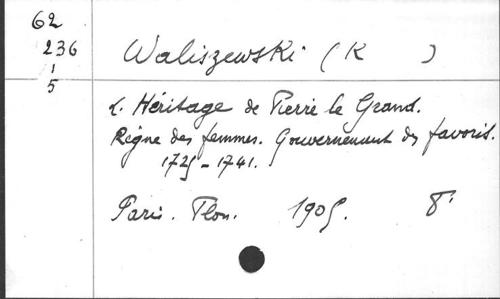 62
236
1
5
Waliszewski (K )
L. Héritage de Pierre le Grand.
Règne des femmes. Gouvernement des favoris.
1725-1741.
Paris. Plon. 1905. 8°